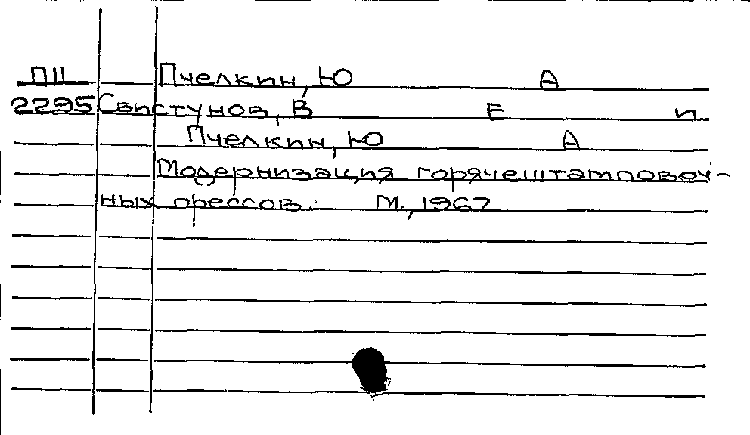 П11 Пчелкин, Ю А
2295 Свистунов, В Е и
Пчелкин, Ю А
Модернизация горячештамповоч-
ных прессов. М., 1967